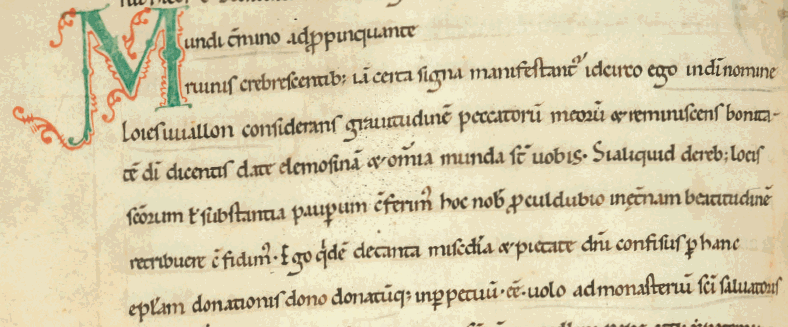 Mundi t̄mino adp̄pinquante
ruinis crebrescentib; iā certa signa manifestant᷑ idcirco ego indīnomine
Loiesuuallon considerans grauitudinē peccatorū meorū & reminiscens bonita-
tē dī dicentis date elemosinā & om̄ia munda st̄ uobis. Sialiquid dereb; locis
sc̄orum ł substantia pauꝑum c̄ferim᷒ hoc nob̄ ꝓculdubio inęt̄nam beatitudinē
retribuere c̄fidim᷒. Ego q̇dē detanta misc̄dīa & pietate dn̄i confisus ꝑ hanc
epl̄am donationis dono donatūq; inꝑpetuū ēē uolo admonasteriū sc̄i saluatoris